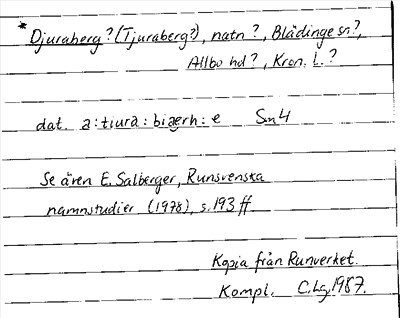 *Djuraberg? (Tjuraberg?), natn?, Blädinge sn?,
Allbo hd?, Kron. l.?
dat. a:tiura:biærh:e Sm4
Se även E. Salberger, Runsvenska
namnstudier (1978), s. 193 ff
Kopia från Runverket.
Kompl. C.Lg. 1987.